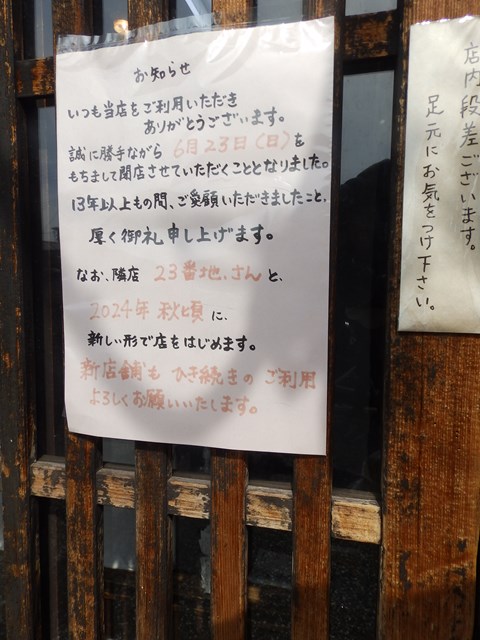 お知らせ
いつも当店をご利用いただき
ありがとうございます。
誠に勝手ながら 6月23日(日)を
もちまして閉店させていただくこととなりました。
13年以上もの間、ご愛顧いただきましたこと、
厚く御礼申し上げます。
なお、隣店 23番地.さんと、
2024年 秋頃に、
新しい形で店をはじめます。
新店舗も ひき続きの ご利用
よろしくお願いいたします。
店内段差ございます。
足元にお気をつけ下さい。